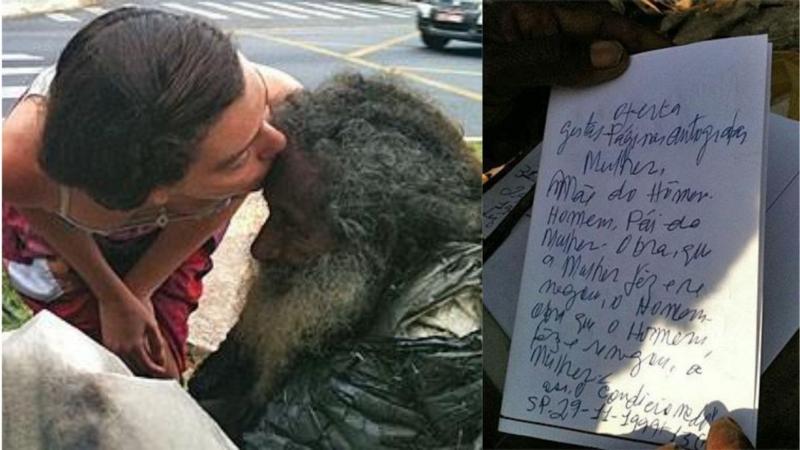 oferta
gestas Páginas autografas
Mulher,
A Mãe do Hômem.
Homem, Pái do
Mulher. Obra, que
a Mulher féz e re
negou, o Homem.
Obra que o Homem
féz e renegou, á
Mulher.
ass. o Condicionado
SP. 29-11-1999.